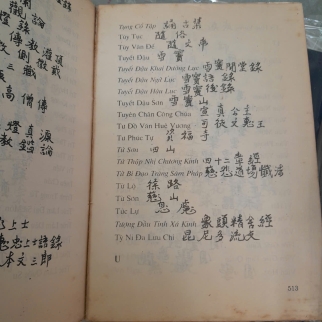 觀
論
錄
教
遊
傳
側
戲
高
僧
傳
燈
真
源
教
錯
論
上士
忠上士語錄
本文三郎
Tụng Cổ Tập 頌古集
Tùy Tục 隨俗
Tùy Văn Đế 隋文帝
Tuyết Đậu 雪竇
Tuyết Đậu Khai Đường Lục 雪竇開堂錄
Tuyết Đậu Ngữ Lục 雪竇語錄
Tuyết Đậu Hậu Lục 雪竇後錄
Tuyết Đậu Sơn 雪竇山
Tuyên Chân Công Chúa 宣真公主
Tư Đồ Văn Huệ Vương 司徒文惠王
Tư Phúc Tự 資福寺
Tứ Sơn 四山
Tứ Thập Nhị Chương Kinh 四十二章經
Từ Bi Đạo Tràng Sám Pháp 慈悲道場懺法
Từ Lộ 徐路
Từ Sơn 慈山
Tức Lự 息慮
Tượng Đầu Tinh Xá Kinh 象頭精舍經
Tỳ Ni Đa Lưu Chi 毘尼多流支
U
513